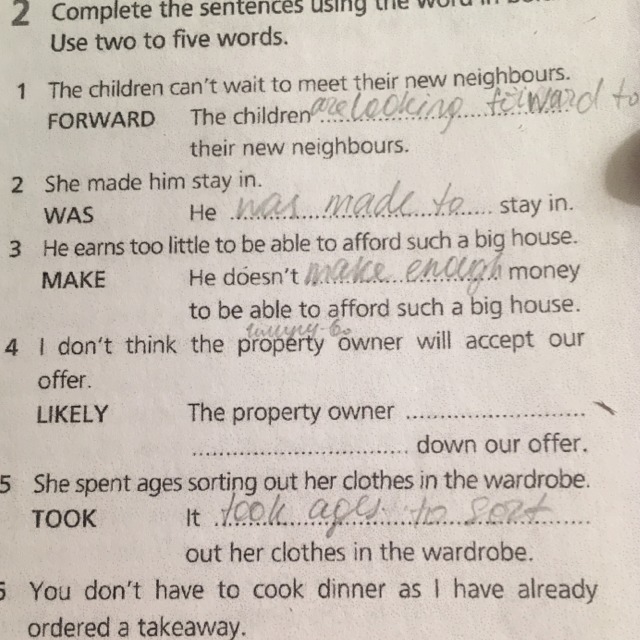 2 Complete the sentences using the word in
Use two to five words.
1 The children can't wait to meet their new neighbours.
FORWARD The children are looking forward to
their new neighbours.
2 She made him stay in.
WAS He was made to stay in.
3 He earns too little to be able to afford such a big house.
MAKE He doesn't make enough money
to be able to afford such a big house.
4 I don't think the property owner will accept our
offer.
LIKELY The property owner ..............................
.................................... down our offer.
5 She spent ages sorting out her clothes in the wardrobe.
TOOK It took ages to sort
out her clothes in the wardrobe.
You don't have to cook dinner as I have already
ordered a takeaway.